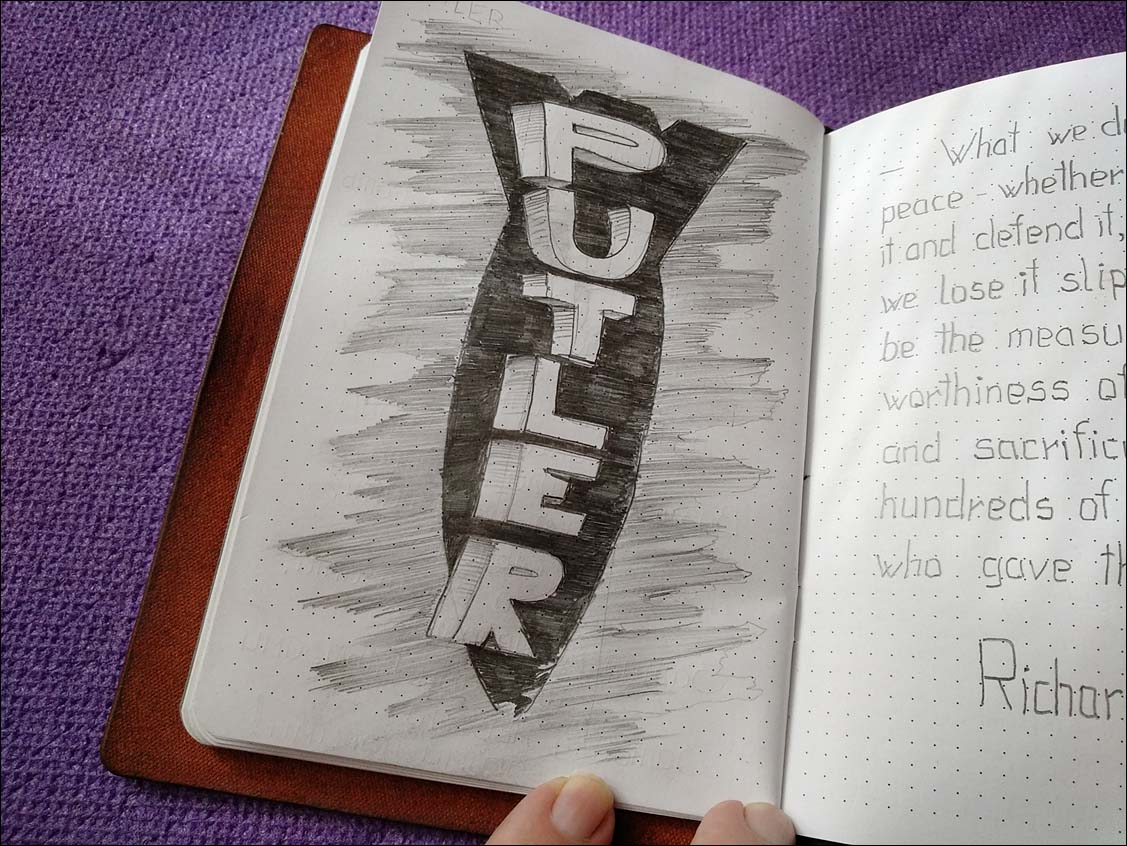 LER
PUTLER
— What we d
peace - whether
it and defend it,
we lose it slip
be the measu
worthiness of
and sacrific
hundreds of
who gave th
Richar